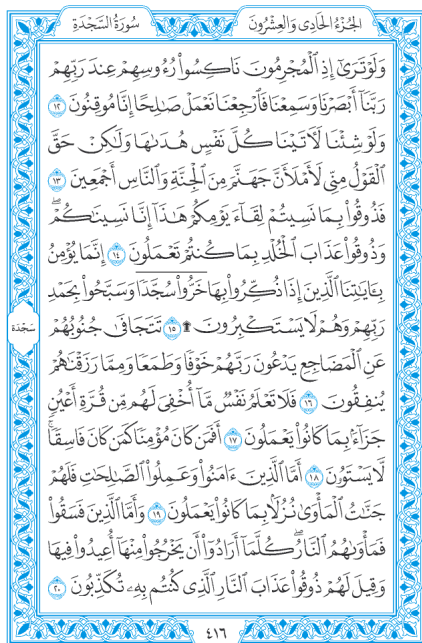 الجُزْءُ الحَادِي وَالعِشْرُونَ
سُورَةُ السَّجْدَةِ
وَلَوْ تَرَىٰٓ إِذِ ٱلْمُجْرِمُونَ نَاكِسُوا۟ رُءُوسِهِمْ عِندَ رَبِّهِمْ
رَبَّنَآ أَبْصَرْنَا وَسَمِعْنَا فَٱرْجِعْنَا نَعْمَلْ صَٰلِحًا إِنَّا مُوقِنُونَ ١٢
وَلَوْ شِئْنَا لَءَاتَيْنَا كُلَّ نَفْسٍ هُدَىٰهَا وَلَٰكِنْ حَقَّ
ٱلْقَوْلُ مِنِّى لَأَمْلَأَنَّ جَهَنَّمَ مِنَ ٱلْجِنَّةِ وَٱلنَّاسِ أَجْمَعِينَ ١٣
فَذُوقُوا۟ بِمَا نَسِيتُمْ لِقَآءَ يَوْمِكُمْ هَٰذَآ إِنَّا نَسِينَٰكُمْ ۖ
وَذُوقُوا۟ عَذَابَ ٱلْخُلْدِ بِمَا كُنتُمْ تَعْمَلُونَ ١٤ إِنَّمَا يُؤْمِنُ
بِـَٔايَٰتِنَا ٱلَّذِينَ إِذَا ذُكِّرُوا۟ بِهَا خَرُّوا۟ سُجَّدًا وَسَبَّحُوا۟ بِحَمْدِ
رَبِّهِمْ وَهُمْ لَا يَسْتَكْبِرُونَ ۩ ١٥ تَتَجَافَىٰ جُنُوبُهُمْ
سَجْدَة
عَنِ ٱلْمَضَاجِعِ يَدْعُونَ رَبَّهُمْ خَوْفًا وَطَمَعًا وَمِمَّا رَزَقْنَٰهُمْ
يُنفِقُونَ ١٦ فَلَا تَعْلَمُ نَفْسٌ مَّآ أُخْفِىَ لَهُم مِّن قُرَّةِ أَعْيُنٍ
جَزَآءًۢ بِمَا كَانُوا۟ يَعْمَلُونَ ١٧ أَفَمَن كَانَ مُؤْمِنًا كَمَن كَانَ فَاسِقًا ۚ
لَّا يَسْتَوُۥنَ ١٨ أَمَّا ٱلَّذِينَ ءَامَنُوا۟ وَعَمِلُوا۟ ٱلصَّٰلِحَٰتِ فَلَهُمْ
جَنَّٰتُ ٱلْمَأْوَىٰ نُزُلًۢا بِمَا كَانُوا۟ يَعْمَلُونَ ١٩ وَأَمَّا ٱلَّذِينَ فَسَقُوا۟
فَمَأْوَىٰهُمُ ٱلنَّارُ ۖ كُلَّمَآ أَرَادُوٓا۟ أَن يَخْرُجُوا۟ مِنْهَآ أُعِيدُوا۟ فِيهَا
وَقِيلَ لَهُمْ ذُوقُوا۟ عَذَابَ ٱلنَّارِ ٱلَّذِى كُنتُم بِهِۦ تُكَذِّبُونَ ٢٠
٤١٦